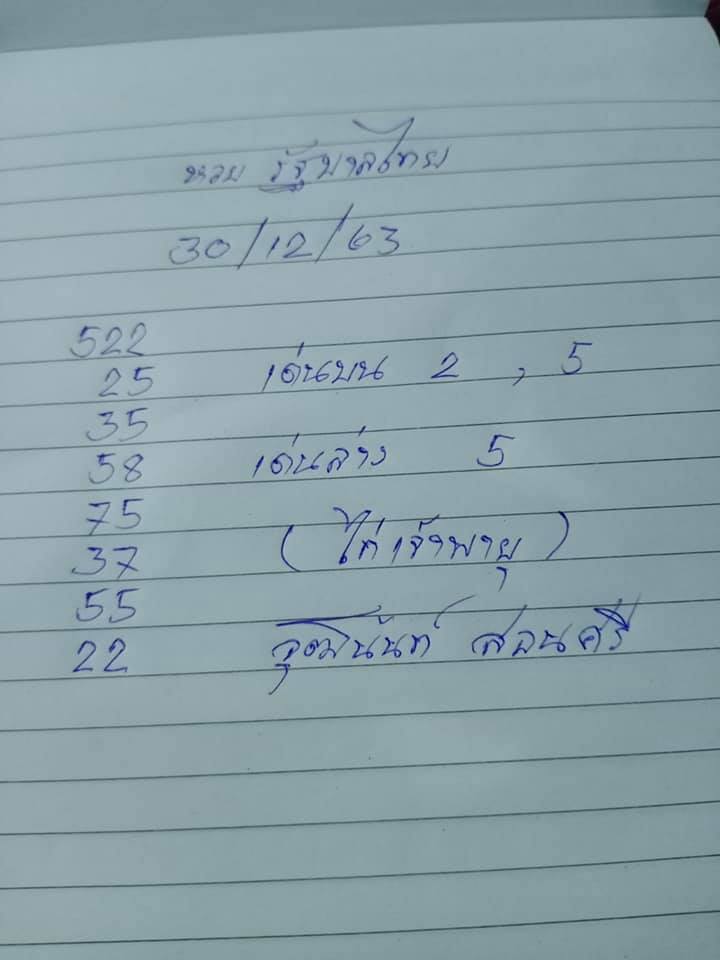 หวย รัฐบาลไทย
30/12/63
522
25 เด่นบน 2 , 5
35
58 เด่นล่าง 5
75
37 (ไก่เจ้าพายุ)
55
22 สอนศรี